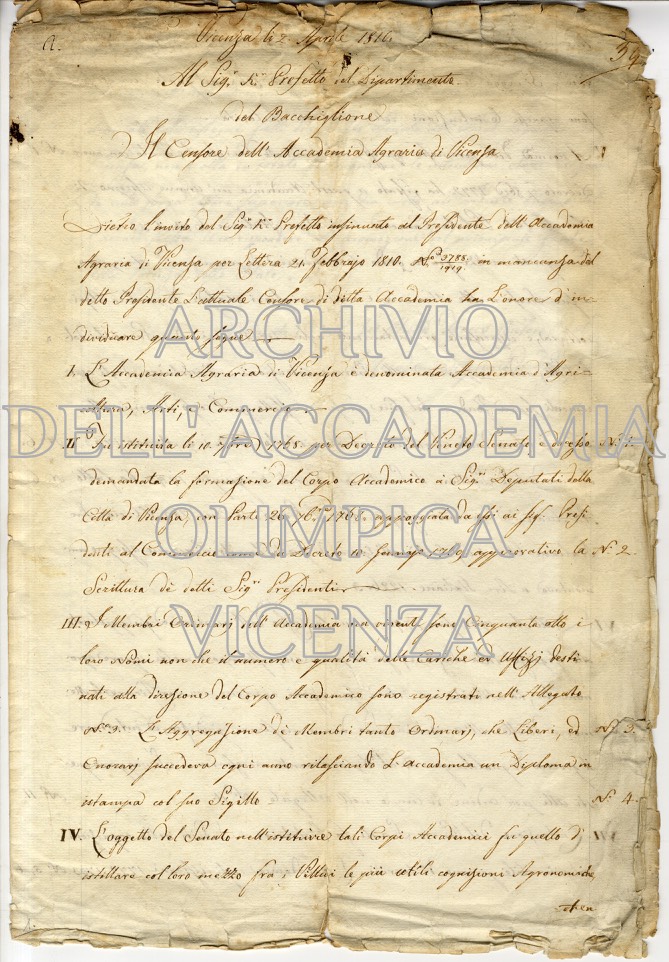 A.
Vicenza li 2 Aprile 1810.
39
Al Sig.r K.r Prefetto del Dipartimento
del Bacchiglione
Il Censore dell'Accademia Agraria di Vicenza
Dietro l'invito del Sig.r K.r Prefetto insinuato al Presidente dell'Accademia
Agraria di Vicenza per Lettera 21. Febbrajo 1810. N.o 3788/1919 in mancanza del
detto Presidente L'attuale Censore di detta Accademia ha L'onore d'in-
dividicare quanto segue
I. L'Accademia Agraria di Vicenza è denominata Accademia d'Agri-
coltura, Arti, e Commercio
II.o Fu istituita li 10. 7bre 1768. per Decreto del Veneto Senato e dietro N.o 1.
demandata la formazione del Corpo Accademico a Sig.ri Deputati della
Città di Vicenza, con Parte 26. 1768. appoggiata da essi ai Sig.ri Presi-
denti al Commercio come da Decreto 10 1769 approvativo la N.o 2.
Scrittura de detti Sig.ri Presidenti
III. I Membri Ordinarj dell'Accademia ora viventi sono Cinquanta otto i
loro Nomi non che il numero e qualità delle Cariche ed Uffizj desti-
nati alla direzione del Corpo Accademico sono registrati nell'Allegato
N.o 3. L'Aggregazione de Membri tanto Ordinarj, che Liberi, ed N.o 3.
Onorarj succedeva ogni anno rilasciando L'accademia un Diploma in
istampa col suo Sigillo N.o 4.
IV. L'oggetto del Senato nell'istituire tali Corpi Accademici fu quello d'
istillare col loro mezzo fra i Villici le più utili cognizioni Agronomiche
1.
ARCHIVIO
DELL'ACCADEMIA
OLIMPICA
VICENZA